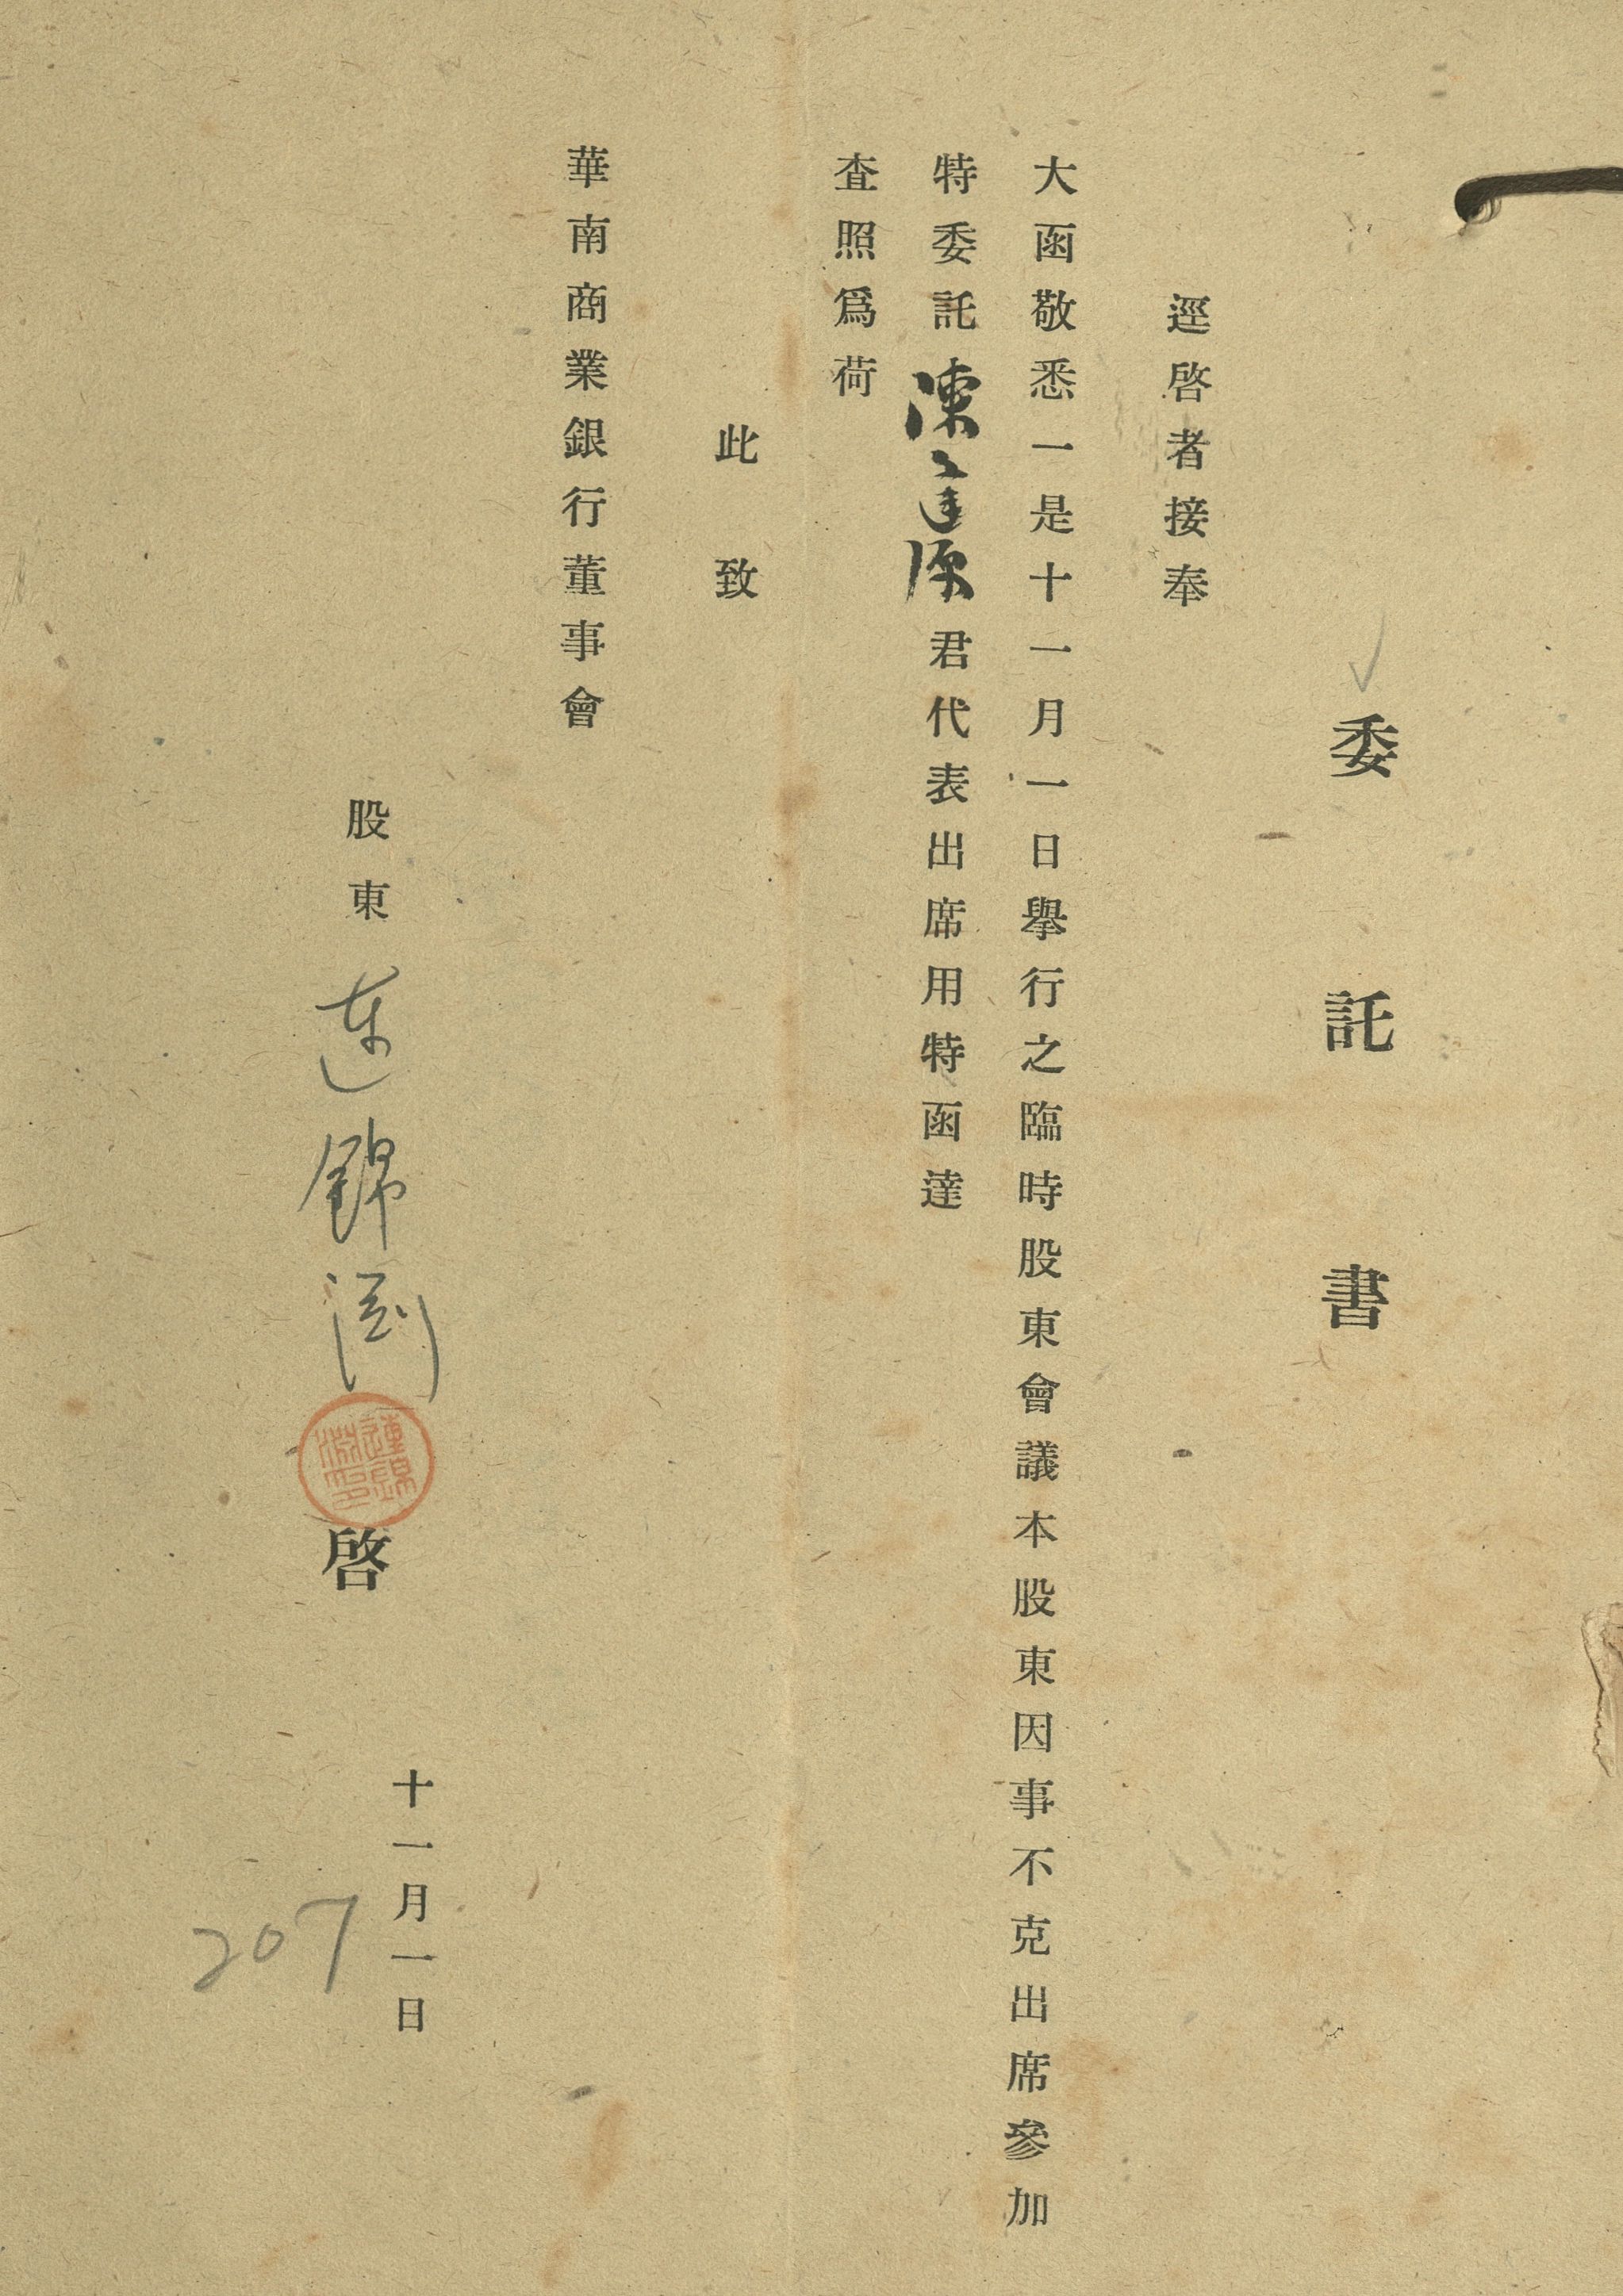 委託書
逕啓者接奉
大函敬悉一是十一月一日舉行之臨時股東會議本股東因事不克出席參加
特委託陳逢源君代表出席用特函達
查照爲荷
此致
華南商業銀行董事會
股東連錦渕啓
連錦淵印
十一月一日
207